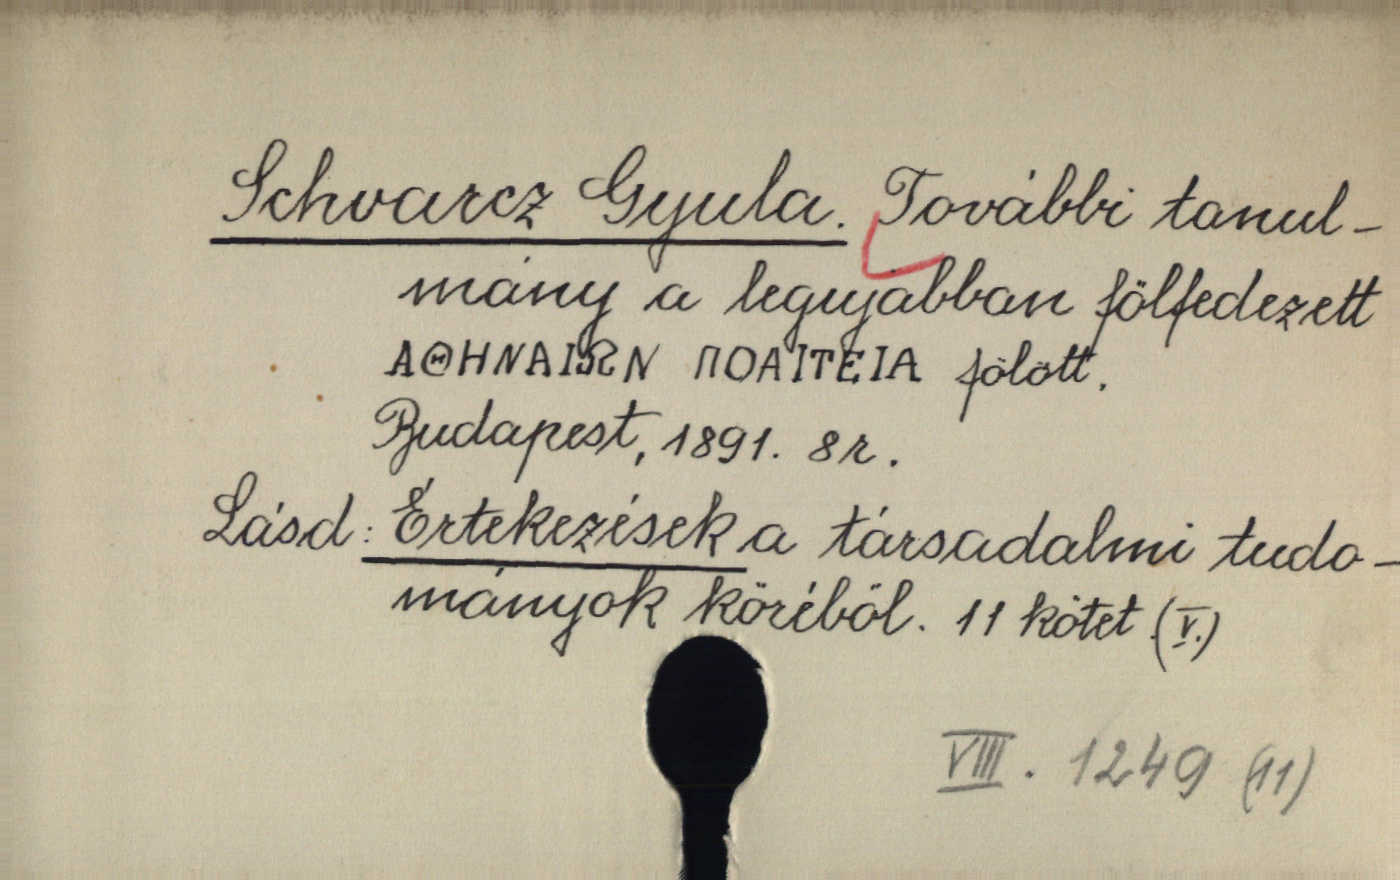 Schvarcz Gyula. További tanul-
mány a legujabban fölfedezett
ΑΘΗΝΑΙΩΝ ΠΟΛΙΤΕΙΑ fölött.
Budapest, 1891. 8r.
Lásd: Értekezések a társadalmi tudo-
mányok köréből. 11 kötet (V.)
VIII. 1249 (11)